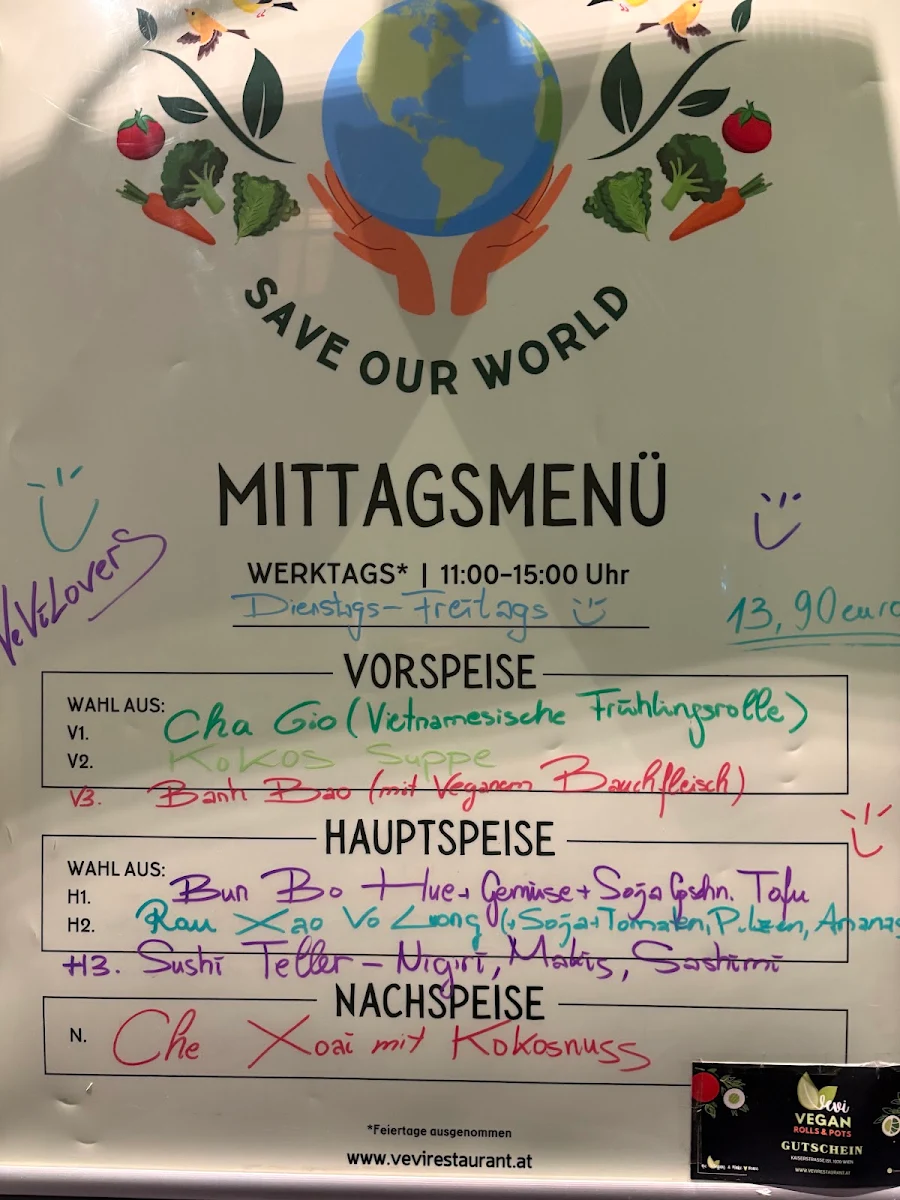 SAVE OUR WORLD
MITTAGSMENÜ
WERKTAGS* | 11:00-15:00 Uhr
Dienstags-Freitags
VeViLovers
13,90 euro
VORSPEISE
WAHL AUS:
V1. Cha Gio (Vietnamesische Frühlingsrolle)
V2. Kokos Suppe
V3. Banh Bao (mit Veganem Bauchfleisch)
HAUPTSPEISE
WAHL AUS:
H1. Bun Bo Hue + Gemüse + Soja Gschn. Tofu
H2. Rau Xao Vo Luong (+Soja+Tomaten, Pilzen, Ananas
H3. Sushi Teller - Nigiri, Makis, Sashimi
NACHSPEISE
N. Che Xoai mit Kokosnuss
*Feiertage ausgenommen
www.vevirestaurant.at
Vevi
VEGAN
ROLLS & POTS
GUTSCHEIN
WWW.VEVIRESTAURANT.AT